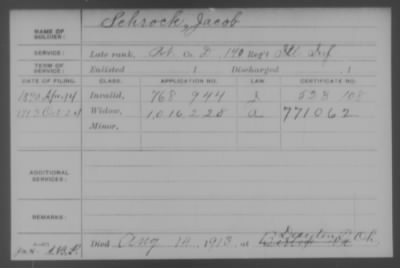 Schrock, Jacob
NAME OF SOLDIER:
SERVICE: Late rank, Pvt. Co. D, 190 Reg't Ill. Inf
TERM OF SERVICE: Enlisted 1 Discharged , 1
DATE OF FILING. CLASS. APPLICATION NO. LAW CERTIFICATE NO.
1890 Apr. 14 Invalid, 768 944 523 108
1913 Oct. Widow, 1,016,228 a 771062
Minor,
ADDITIONAL SERVICES:
REMARKS:
Died Aug 14, 1913, at Dayton